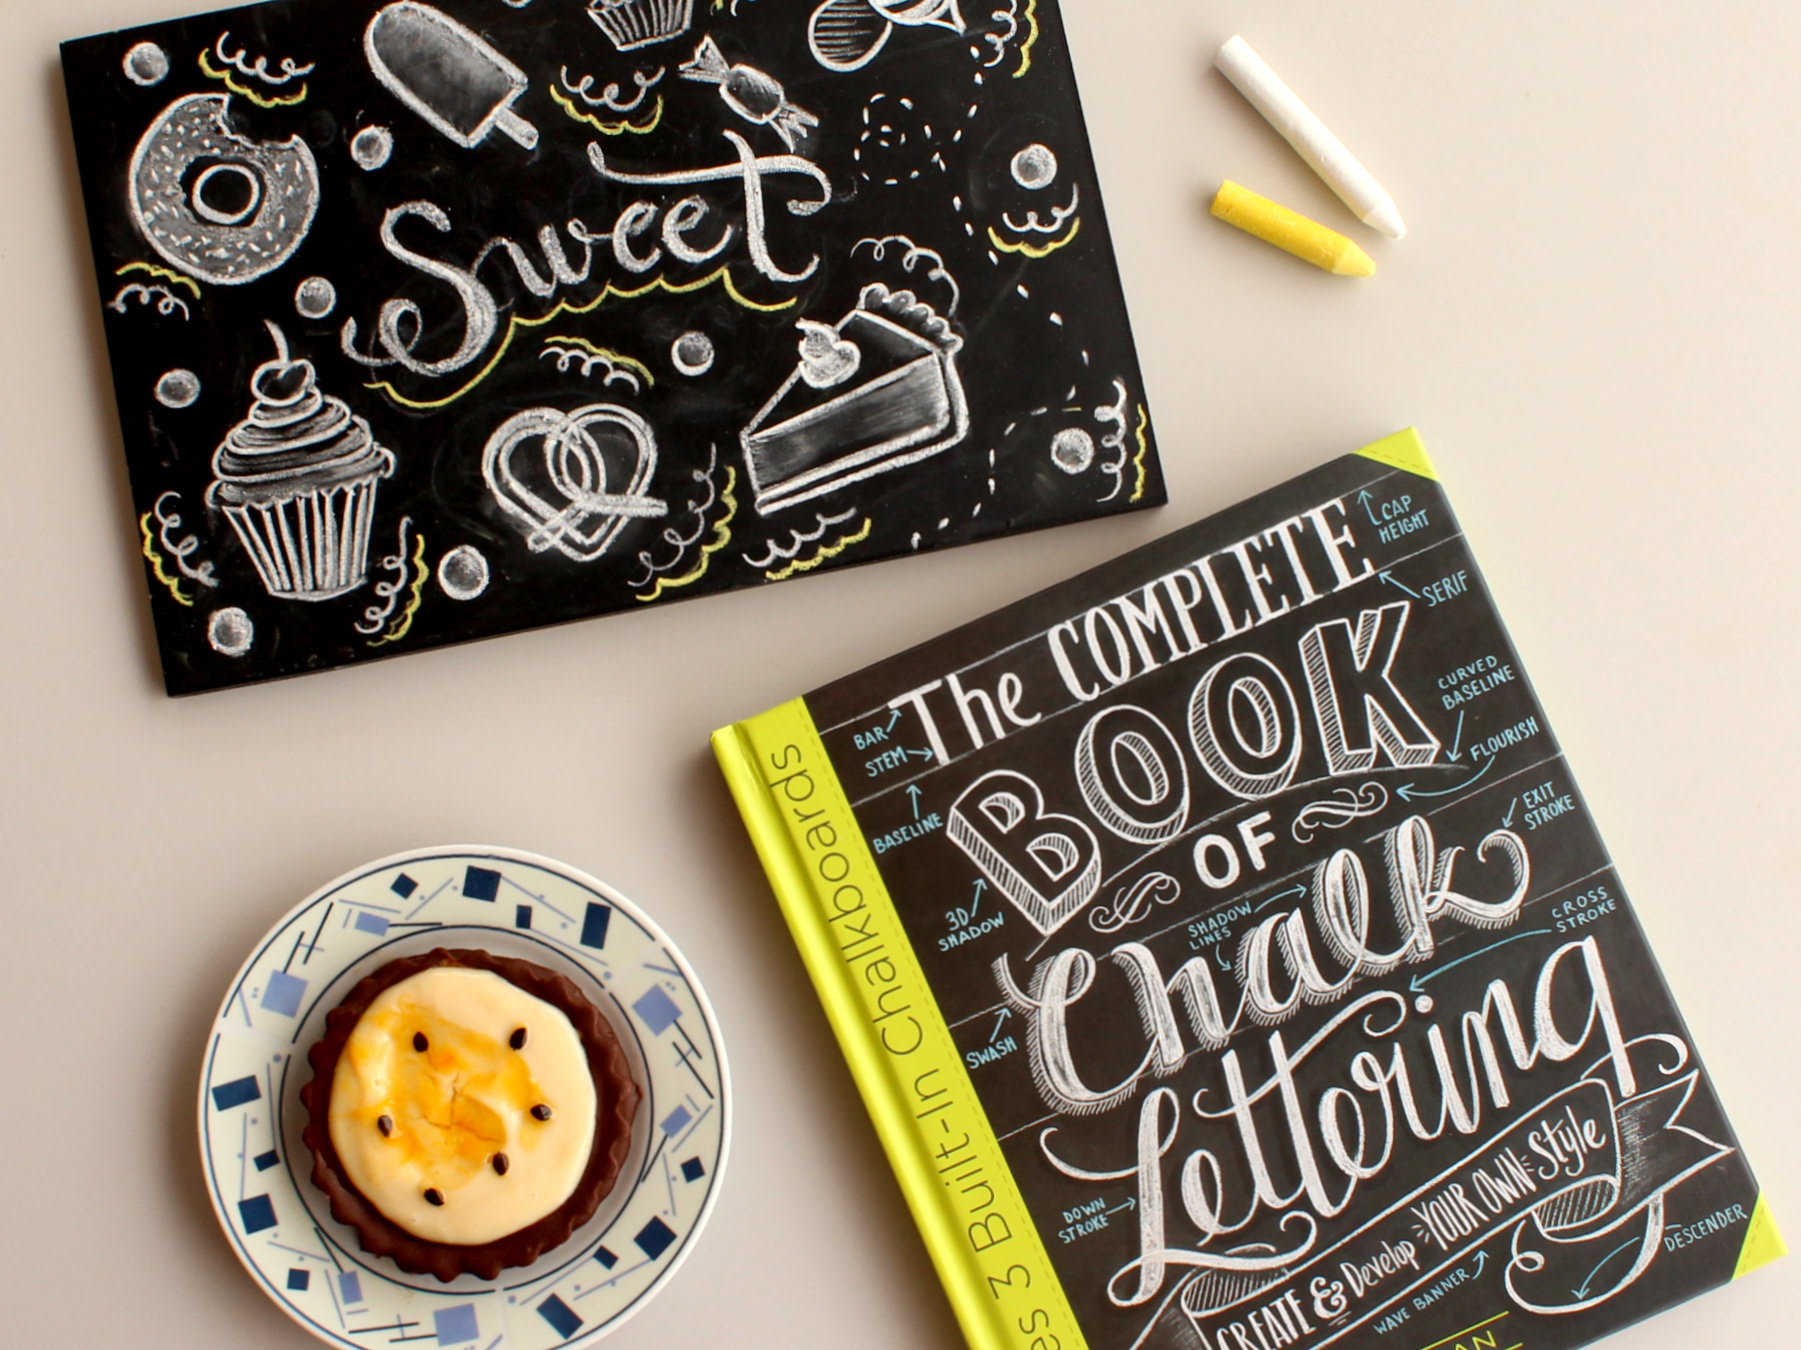 Sweet
The COMPLETE
BOOK
OF
Chalk
Lettering
CREATE & Develop YOUR OWN Style
CAP
HEIGHT
SERIF
CURVED
BASELINE
FLOURISH
EXIT
STROKE
CROSS
STROKE
BAR
STEM
BASELINE
3D
SHADOW
SHADOW
LINES
SWASH
DOWN
STROKE
WAVE BANNER
DESCENDER
3 Built-In Chalkboards